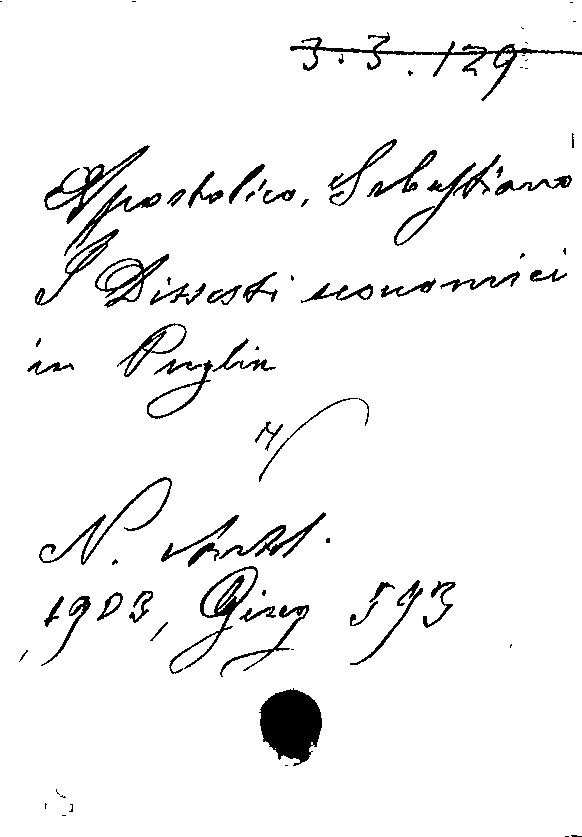 3.3.129
Apostolico, Sebastiano
I Dissesti economici
in Puglia
N. Antol.
1903, Giug 593